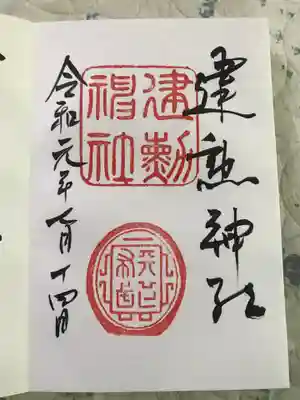 建勲神社
建勲
神社
令和元年八月十四日